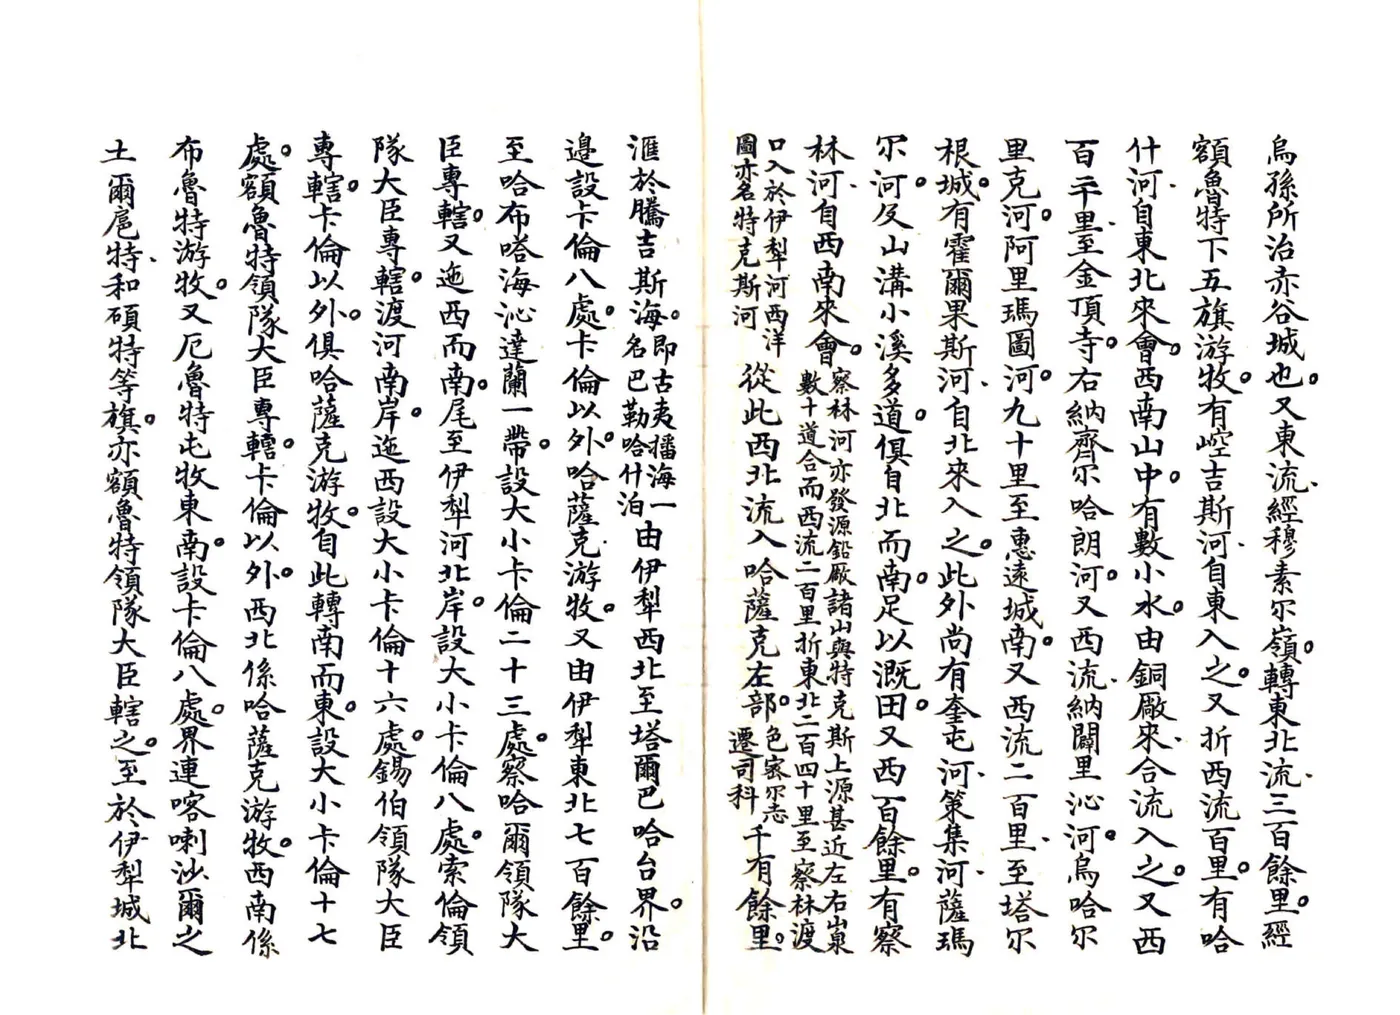 烏孫所治赤谷城也。又東流、經穆素尔嶺。轉東北流、三百餘里。經
額魯特下五旗游牧。有崆吉斯河、自東入之。又折西流百里。有哈
什河、自東北來會。西南山中。有數小水。由銅廠來、合流入之。又西
百二千里。至金頂寺。右納齊尔哈朗河。又西流、納闢里沁河。烏哈尔
里克河。阿里瑪圖河。九十里至惠遠城南。又西流二百里、至塔尔
根城。有霍爾果斯河、自北來入之。此外尚有奎屯河、策集河、薩瑪
尔河。及山溝小溪多道。俱自北而南。足以溉田。又西百餘里。有察
林河、自西南來會。察林河亦發源鉛厰諸山與特克斯上源甚近左右嵏
數十道合而西流二百里折東北二百四十里至察林渡
口入於伊犁河西洋
圖亦名特克斯河
從此西北流入哈薩克左部。色家尔志
遷司科
千有餘里。
滙於騰吉斯海。即古夷播海一
名巴勒哈什泊
由伊犁西北至塔爾巴哈台界。沿
邊設卡倫八處。卡倫以外。哈薩克、游牧。又由伊犁東北七百餘里。
至哈布塔海沁達蘭一帶。設大小卡倫二十三處。察哈爾領隊大
臣專轄。又迤西而南。尾至伊犁河北岸。設大小卡倫八處。索倫領
隊大臣專轄。渡河南岸。迤西設大小卡倫十六處。錫伯領隊大臣
專轄。卡倫以外。俱哈薩克游牧。自此轉南而東。設大小卡倫十七
處。額魯特領隊大臣專轄。卡倫以外。西北係哈薩克游牧。西南係
布魯特游牧。又厄魯特屯牧東南。設卡倫八處。界連喀喇沙爾之
土爾扈特、和碩特等旗。亦額魯特領隊大臣轄之。至於伊犁城北